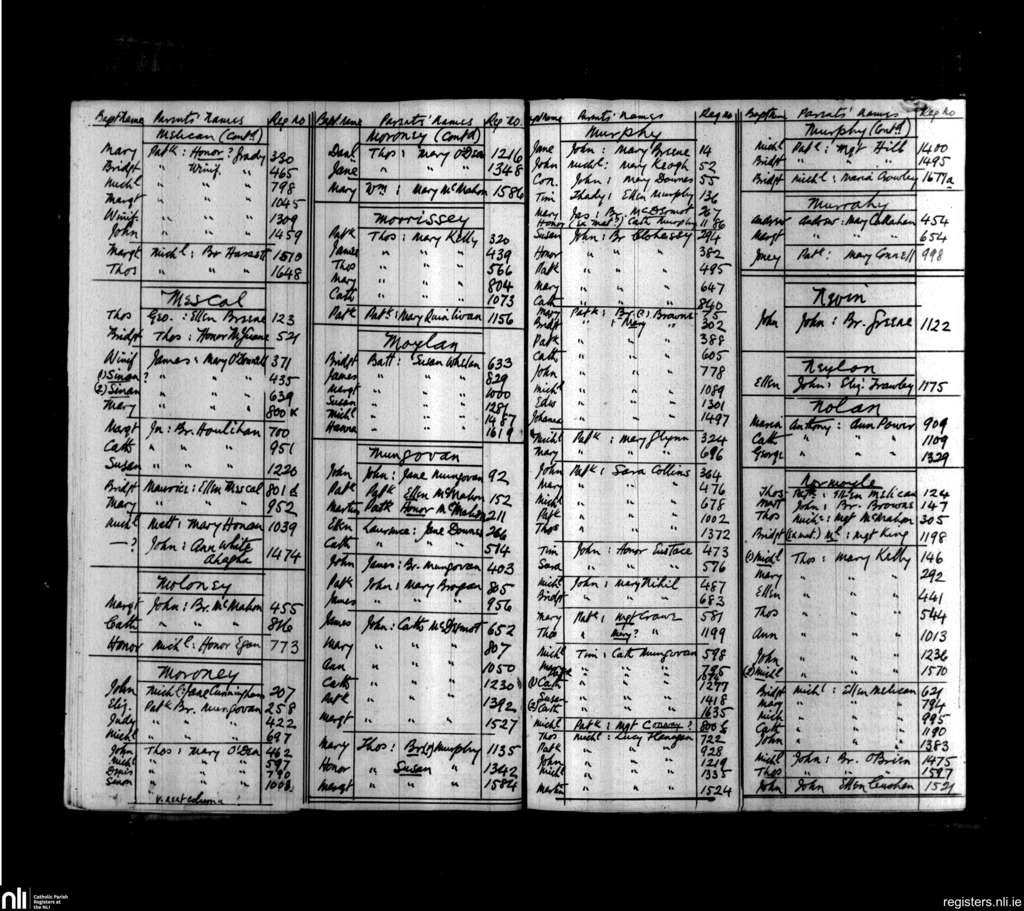 Bapt Name Parents' Names Reg no
Melican (Contd)
Mary Patk: Honor? Grady 330
Bridgt " Winif. " 465
Michl " " " 798
Margt " " " 1045
Winif. " " " 1309
John " " " 1459
Margt Michl: Br 1510
Thos " " " 1648
Mescal
Thos Geo.: Ellen Breene 123
Bridgt Thos: Honor 521
Winif James: Mary O'Donnell 371
(1) Sinan? " " " 435
(2) Sinan " " " 639
Mary " " " 800
Margt Jn: Br. Houlihan 700
Cath " " " 951
Susan " " " 1220
Bridgt Maurice: Ellen Mescal 801
Mary " " " 952
Michl Matt: Mary Honan 1039
—? John: Ann White 1474
Moloney
Margt John: Br. McMahon 455
Cath " " " 816
Honor Michl: Honor Egan 773
Moroney
John Mich: Jane Cunningham 207
Eliz. Patk Br. Mungovan 258
Judy " " " 422
Michl " " " 697
John Thos: Mary O'Dea 462
Michl " " " 597
" " " 790
Sinon " " " 1008
Bapt name Parents' names Reg no.
Moroney (Contd)
Danl Thos: Mary O'Dea 1216
Jane " " " 1348
Mary Wm: Mary McMahon 1586
Morrissey
Patk Thos: Mary Kelly 320
James " " " 439
Thos " " " 566
Mary " " " 804
Cath " " " 1073
Patk Patk: Mary Quinlivan 1156
Moylan
Bridgt Batt: Susan Whelan 633
James " " " 829
Margt " " " 1000
Susan " " " 1281
Michl " " " 1487
Hanna " " " 1619
Mungovan
John John: Jane Mungovan 92
Patk Patk Ellen McMahon 152
Martin Patk Honor McMahon 211
Ellen Laurence: Jane Downes 266
Cath " " " 514
John James: Br. Mungovan 403
Patk John: Mary Brogan 805
James " " " 956
James John: Cath McDermot 652
Mary " " " 807
Ann " " " 1050
Cath " " " 1230
Patk " " " 1392
Margt " " " 1527
Mary Thos: Brid Murphy 1135
Honor " Susan " 1342
Margt " " " 1584
Parents' names Reg no
Murphy
Jane John: Mary Breene 14
John Michl: Mary Keogh 52
Con. John: Mary Downes 55
Tim Thady: Ellen Murphy 136
Mary Jas: Br. McDermot 267
Honor (ex mat?): Cath Murphy 1186
Susan John: Br Clohessy 294
Honor " " " 382
Patk " " " 495
Mary " " " 647
Cath " " " 840
Mary Patk: Br. (?) Browne 75
Bridgt " : Mary " 302
Patk " " " 388
Cath " " " 605
John " " " 778
Michl " " " 1089
Edw " " " 1301
Johanna " " " 1497
Michl Patk: Mary Glynn 324
Mary " " " 696
John Patk: Sara Collins 364
Mary " " " 476
Michl " " " 678
Patk " " " 1002
Thos " " " 1372
Tim John: Honor Eustace 473
Sara " " " 576
Michl John: Mary Nihil 487
Bridgt " " " 683
Mary Patk: Mgt 581
Thos " Mary? " 1199
Michl Tim: Cath Mungovan 598
" " " 795
(1) Cath " " " 1277
Susan " " " 1418
(2) Cath " " " 1635
Michl Patk: Mgt Conway? 800
Thos Michl: Lucy Flanagan 722
Patk " " " 928
John " " " 1219
Michl " " " 1335
Martin " " " 1524
Bapt Name Parents' names Reg no
Murphy (Contd)
Michl Patk: Mgt Hill 1400
Bridgt " " " 1495
Bridgt Michl: Maria Crowley 1677a
Murrahy
Andrew Andrew: Mary Callaghan 454
Margt " " " 654
Patk: Mary Connell 998
Nevin
John John: Br. Greene 1122
Neylon
Ellen John: Eliz. Frawley 1175
Nolan
Maria Anthony: Ann Power 909
Cath " " " 1109
George " " " 1329
Normoyle
Thos Patk: Ellen Melican 124
John: Br. Browne 147
Thos Michl: Mgt McMahon 305
Bridgt (ex mat) Ml: Mgt King 1198
(1) Michl Thos: Mary Kelly 146
Mary " " " 292
Ellen " " " 441
Thos " " " 544
Ann " " " 1013
John " " " 1236
(2) Michl " " " 1570
Bridgt Michl: Ellen Melican 621
Mary " " " 794
Mich " " " 995
Cath " " " 1190
John " " " 1383
Michl John: Br. O'Brien 1475
Thos " " " 1597
John John Ellen 1521
nli Catholic Parish
Registers at
the NLI
registers.nli.ie